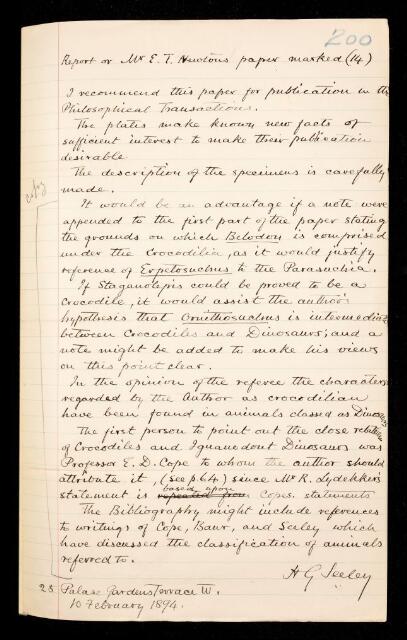 200
Report on Mr E. T. Newtons paper marked (14)
I recommend this paper for publication in the
Philosophical Transactions.
The plates make known new facts of
sufficient interest to make their publication
desirable
The description of the specimens is carefully
made.
copy
It would be an advantage if a note were
appended to the first part of the paper stating
the grounds on which Belodon is comprised
under the Crocodilia, as it would justify
reference of Erpetosuchus to the Parasuchia.
If Staganolepis could be proved to be a
Crocodile, it would assist the author's
hypothesis that Ornithosuchus is intermediate
between Crocodiles and Dinosaurs; and a
note might be added to make his views
on this point clear.
In the opinion of the referee the characters
regarded by the Author as crocodilian
have been found in animals classed as Dinosaurs
The first person to point out the close relation
of Crocodiles and Iguanodont Dinosaurs was
Professor E. D. Cope to whom the author should
attribute it, (see p 64) since Mr R. Lydekker's
based upon
statement is repeated from Copes. statements
The Bibliography might include references
to writings of Cope, Baur, and Seeley which
have discussed the classification of animals
referred to.
H G Seeley
25 Palace Gardens Terrace W.
10 February 1894.